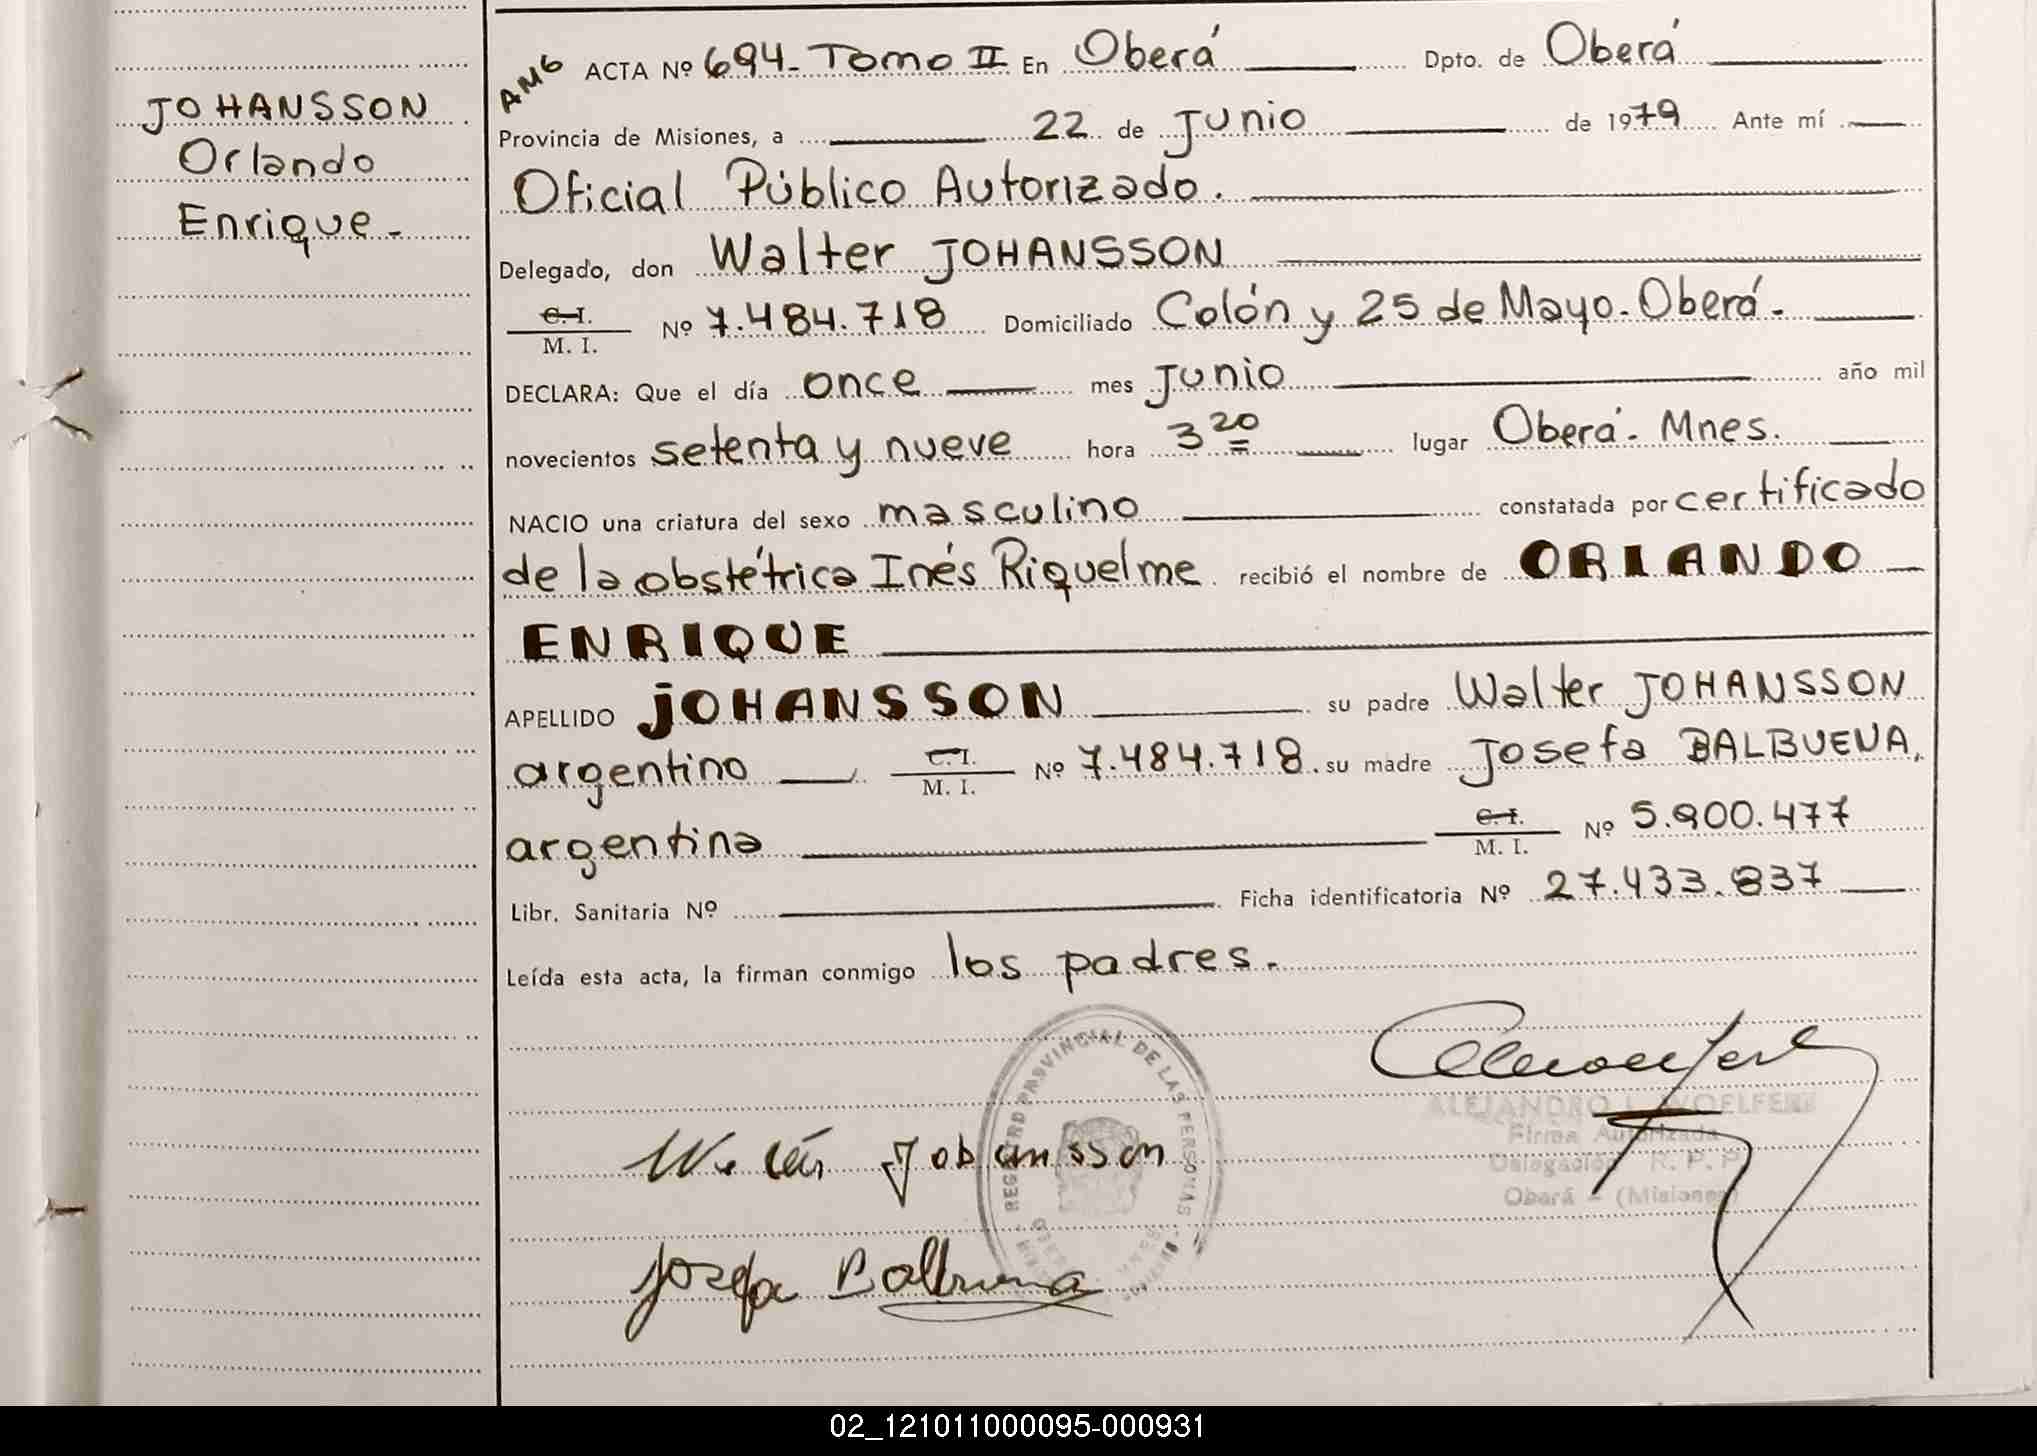 JOHANSSON
Orlando
Enrique.-
AMG ACTA Nº 694- Tomo II En Oberá Dpto. de Oberá
Provincia de Misiones, a 22 de Junio de 1979 Ante mí
Oficial Público Autorizado.
Delegado, don Walter JOHANSSON
C.I. / M. I. Nº 7.484.718 Domiciliado Colón y 25 de Mayo.- Oberá.-
DECLARA: Que el día once mes Junio año mil
novecientos setenta y nueve hora 3 20 lugar Oberá.- Mnes.
NACIO una criatura del sexo masculino constatada por certificado
de la obstétrica Inés Riquelme recibió el nombre de ORLANDO
ENRIQUE
APELLIDO JOHANSSON su padre Walter JOHANSSON
argentino C.I. / M. I. Nº 7.484.718. su madre Josefa BALBUENA,
argentina C.I. / M. I. Nº 5.900.477
Libr. Sanitaria Nº Ficha identificatoria Nº 27.433.837
Leída esta acta, la firman conmigo los padres.-
REGISTRO PROVINCIAL DE LAS PERSONAS
ALEJANDRO
Firma Autorizada
Delegación R. P. P.
Oberá - (Misiones)
Johansson
Josefa Balbuena
02_121011000095-000931